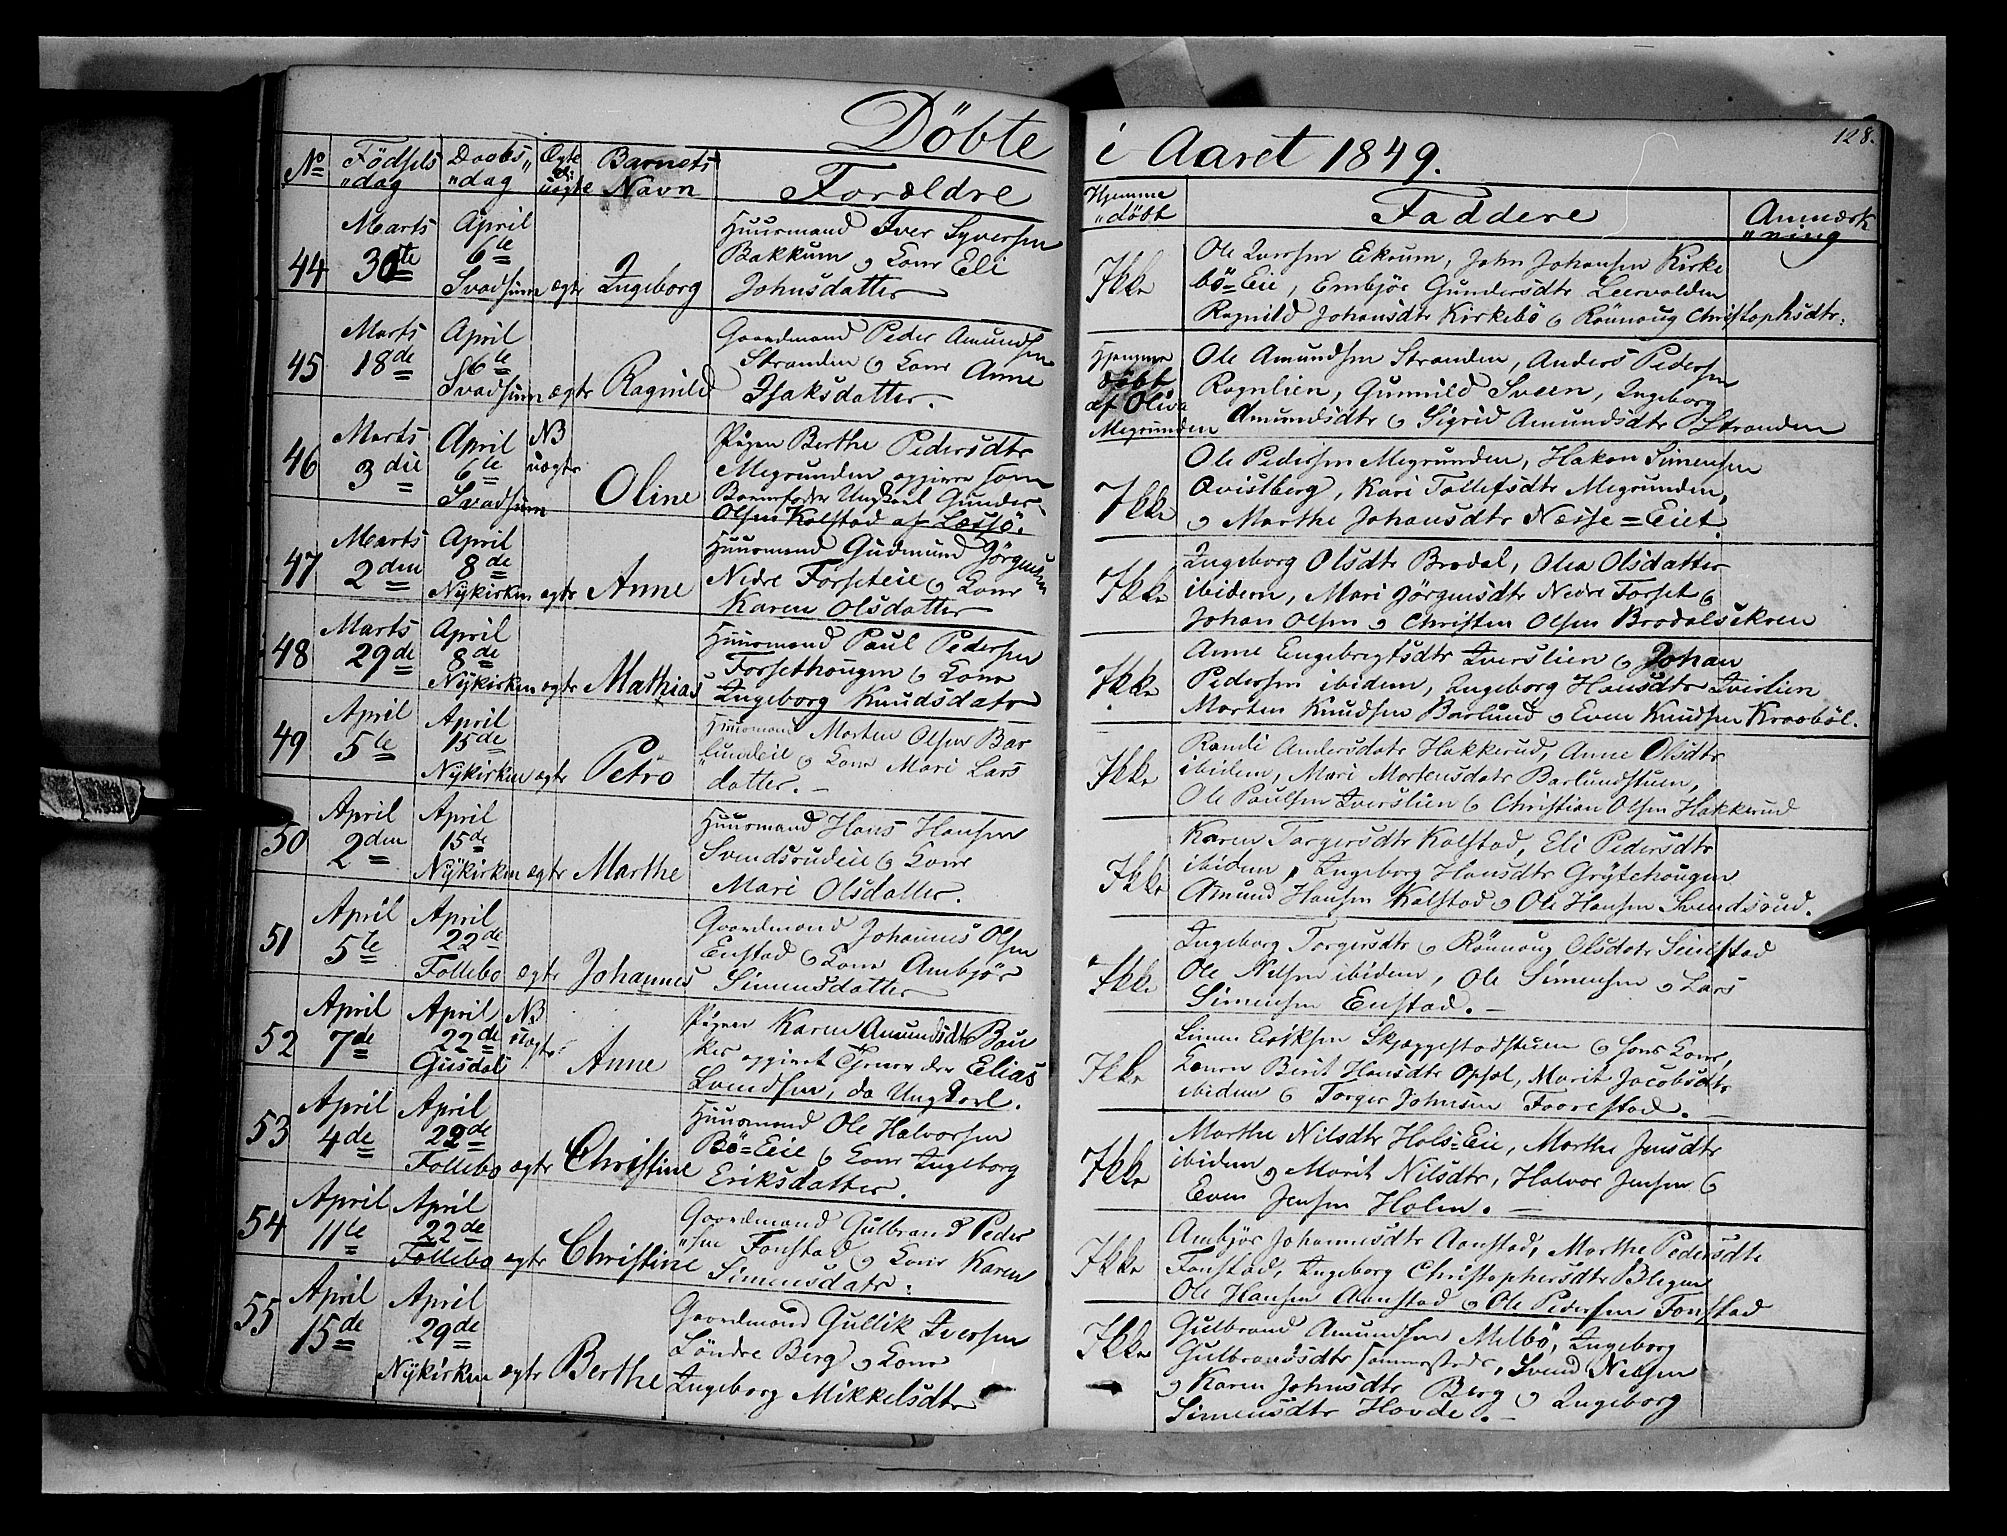 Döbte i Aaret 1849.
128.
No Födsels Daabs Ægte Barnets
"dag "dag uægte Navn Forældre
Hjemme
"döbt Faddere Anmærk
"ning
44 Marts 30te April 6te Svadsum ægte Ingeborg
Huusmand Iver Syversen
Bakkum og Kone Eli
Johnsdatter
Ikke
Ole Iversen Ekrum, John Johansen Kirke
bö=Eie, Embjör Gundersdtr Leervolden
Ragnild Johansdtr Kirkebö og Rönnoug Christophsdtr:
45 Marts 18de April 6te Svadsum ægte Ragnild
Gaardmand Peder Amundsen
Stranden og Kone Anne
Isaksdatter.
Hjemme
döbt
af Oliva
Megrunden
Ole Amundsen Stranden, Anders Pedersen
Rognlien, Gunnild Sveen, Ingeborg
Amundsdtr og Sigrid Amundsdtr Stranden
46 Marts 3die April 6te Svadsum NB uægte Oline
Pigen Berthe Pedersdtr
Megrunden opgiver som
Barnefader Ungkarl Gunder
Olsen Kolstad af Læssö.
Ikke
Ole Pedersen Megrunden, Hakon Simensen
Qvistberg, Kari Tollefsdtr Megrunden,
og Marthe Johansdtr Næsse=Eiet
47 Marts 2den April 8de Nykirken ægte Anne
Huusmand Gudmund Jörgensen
Nedre Forseteie og Kone
Karen Olsdatter
Ikke
Ingeborg Olsdtr Bradal, Olea Olsdatter
ibidem, Mari Jörgensdtr Nedre Forset og
Johan Olsen og Christen Olsen Brodalsekren
48 Marts 29de April 8de Nykirken ægte Mathias
Huusmand Paul Pedersen
Forsethougen og Kone
Ingeborg Knudsdatr
Ikke
Anne Engebregtsdtr Iverslien og Johan
Pedersen ibidem, Ingeborg Hansdtr Iverslien
Morten Knudsen Barlund og Even Knudsen Kraaböl.
49 April 5te April 15de Nykirken ægte Petro
Huusmand Morten Olsen Bar
"lundeie og Kone Mari Lars
datter.
Ikke
Randi Andersdatr Hakkerud, Anne Olsdtr
ibidem, Mari Mortensdatr Barlundstuen,
Ole Paulsen Iverslien og Christian Olsen Hakkerud
50 April 2den April 15de Nykirken ægte Marthe
Huusmand Hans Hansen
Svendsrudeie og Kone
Mari Olsdatter.
Ikke
Karen Torgersdtr Kolstad, Eli Pedersdtr
ibidem, Ingeborg Hansdtr Grytehougen
Amund Hansen Kolstad og Ole Hansen Svendsrud.
51 April 5te April 22de Follebo ægte Johannes
Gaardmand Johannes Olsen
Enstad og Kone Ambjör
Simensdatter
Ikke
Ingeborg Torgersdtr og Rönnoug Olsdatr Seielstad
Ole Nilsen ibidem, Ole Simensen og Lars
Simensen Enstad.
52 April 7de April 22de Gusdal NB uægte Anne
Pigen Karen Amundsdtr Bau
ker opgivet Elias
Svendsen, do Ungkarl.
Ikke
Simen Eriksen Skjæggestadstuen og hans Kone,
Konen Birit Hansdtr Opsal, Marit Jacobsdtr
ibidem og Torger Johnsen Faarestad.
53 April 4de April 22de Follebo ægte Christine
Huusmand Ole Halvorsen
Bö=Eie og Kone Ingeborg
Eriksdatter.
Ikke
Marthe Nilsdtr Hols=Eie, Marthe Jensdtr
ibidem og Marit Nilsdtr, Halvor Jensen og
Even Jensen Holen.
54 April 11te April 22de Follebo ægte Christine
Gaardmand Gulbrand Peder
"sen Fonstad og Kone Karen
Simensdatr:
Ikke
Ambjör Johannesdtr Aanstad, Marthe Pedersdtr
Fonstad, Ingeborg Christophersdtr Blegen
Ole Hansen Aanstad og Ole Pedersen Fonstad
55 April 15de April 29de Nykirken ægte Berthe
Gaardmand Gullik Iversen
Söndre Berg og Kone
Ingeborg Mikkelsdtr
Ikke
Gulbrand Amundsen Melbö, Ingeborg
Gulbrandsdtr Svend Nilsen
og Karen Johnsdtr Berg og Ingeborg
Simensdtr Hovde.